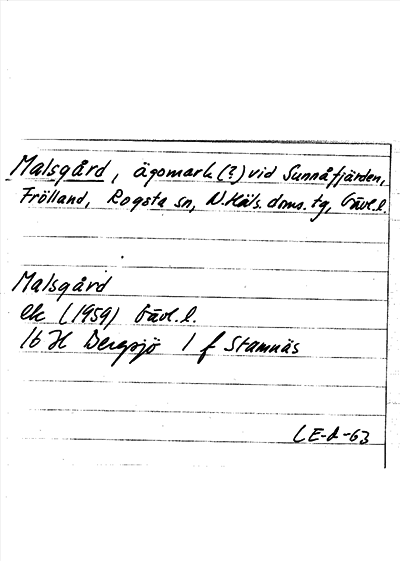 Malsgård, ägomark (?) vid Sunnåfjärden,
Frölland, Rogsta sn, N. Häls. doms. tg, Gävl.l.
Malsgård
ek (1959) Gävl.l.
16 H Bergsjö 1 f Stamnäs
LE-A-63